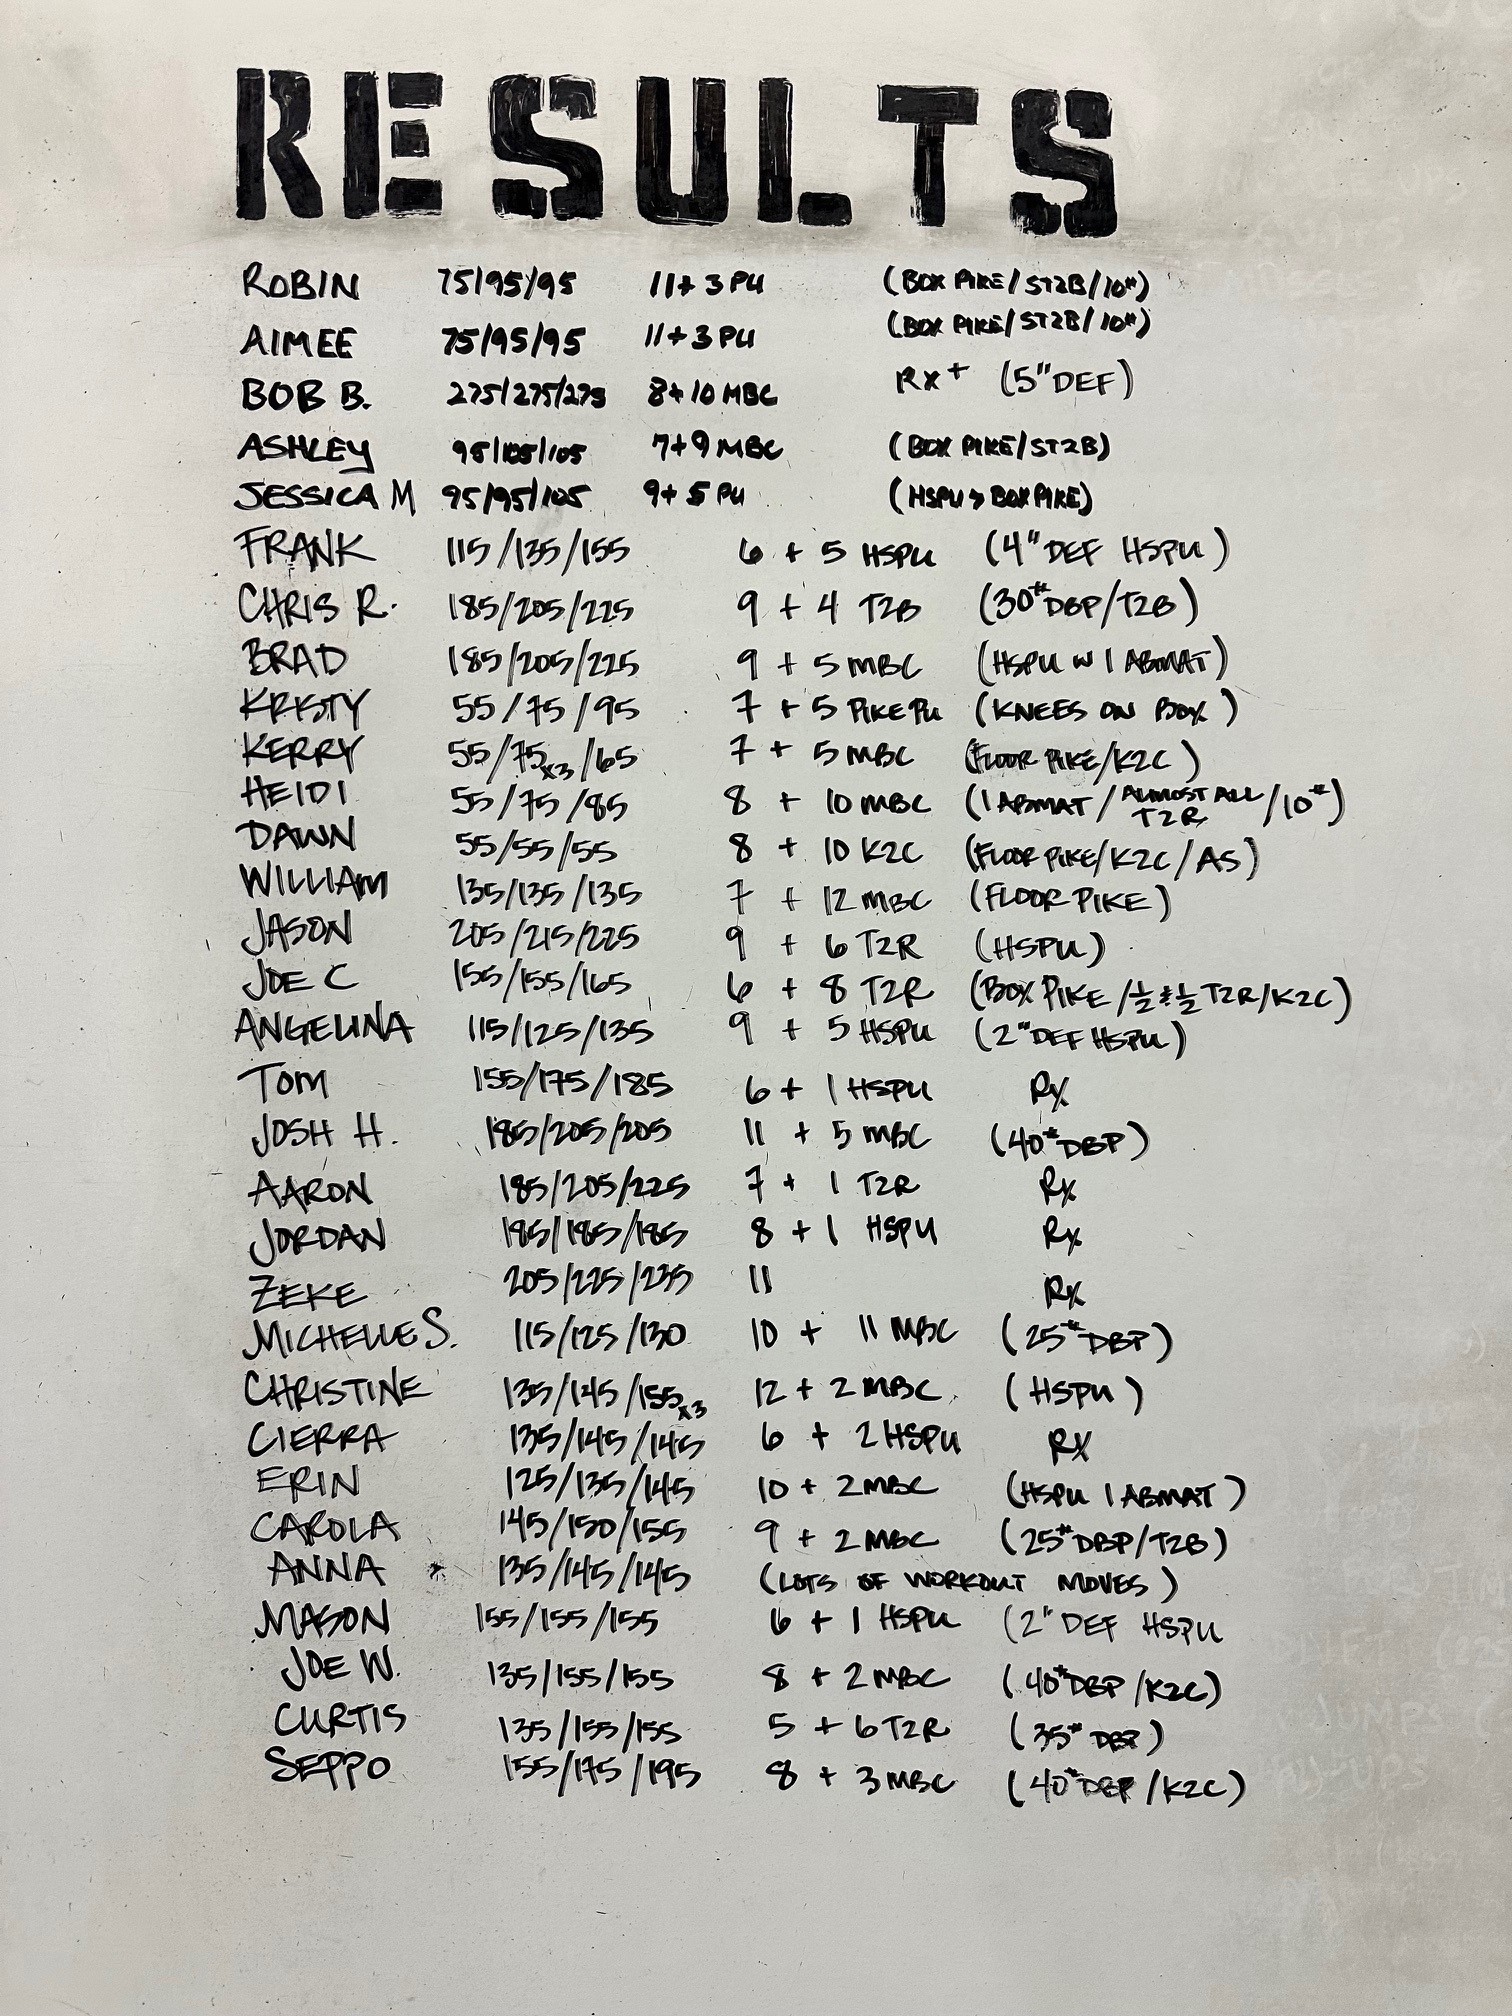 RESULTS
ROBIN 75/95/95 11+ 3 PU (BOX PIKE/ST2B/10#)
AIMEE 75/95/95 11+3 PU (BOX PIKE/ST2B/10#)
BOB B. 275/275/275 8+10 MBC RX+ (5"DEF)
ASHLEY 95/105/105 7+9 MBC (BOX PIKE/ST2B)
JESSICA M 95/95/105 9+ 5 PU (HSPU > BOX PIKE)
FRANK 115/135/155 6 + 5 HSPU (4" DEF HSPU)
CHRIS R. 185/205/225 9 + 4 T2B (30# DBP/T2B)
BRAD 185/205/225 9 + 5 MBC (HSPU W 1 ABMAT)
KRISTY 55/75/95 7 + 5 PIKE PU (KNEES ON BOX)
KERRY 55/75x3/65 7 + 5 MBC (FLOOR PIKE/K2C)
HEIDI 55/75/85 8 + 10 MBC (1 ABMAT/ALMOST ALL T2R/10#)
DAWN 55/55/55 8 + 10 K2C (FLOOR PIKE/K2C/AS)
WILLIAM 135/135/135 7 + 12 MBC (FLOOR PIKE)
JASON 205/215/225 9 + 6 T2R (HSPU)
JOE C 155/155/165 6 + 8 T2R (BOX PIKE/½ & ½ T2R/K2C)
ANGELINA 115/125/135 9 + 5 HSPU (2" DEF HSPU)
TOM 155/175/185 6 + 1 HSPU Rx
JOSH H. 185/205/205 11 + 5 MBC (40# DBP)
AARON 185/205/225 7 + 1 T2R Rx
JORDAN 185/185/185 8 + 1 HSPU Rx
ZEKE 205/225/235 11 Rx
MICHELLE S. 115/125/130 10 + 11 MBC (25# DBP)
CHRISTINE 135/145/155x3 12 + 2 MBC (HSPU)
CIERRA 135/145/145 6 + 2 HSPU RX
ERIN 125/135/145 10 + 2 MBC (HSPU 1 ABMAT)
CAROLA 145/150/155 9 + 2 MBC (25# DBP/T2B)
ANNA * 135/145/145 (LOTS OF WORKOUT MOVES)
MASON 155/155/155 6 + 1 HSPU (2" DEF HSPU
JOE W. 135/155/155 8 + 2 MBC (40# DBP/K2C)
CURTIS 135/155/155 5 + 6 T2R (35# DBP)
SEPPO 155/175/195 8 + 3 MBC (40# DBP/K2C)